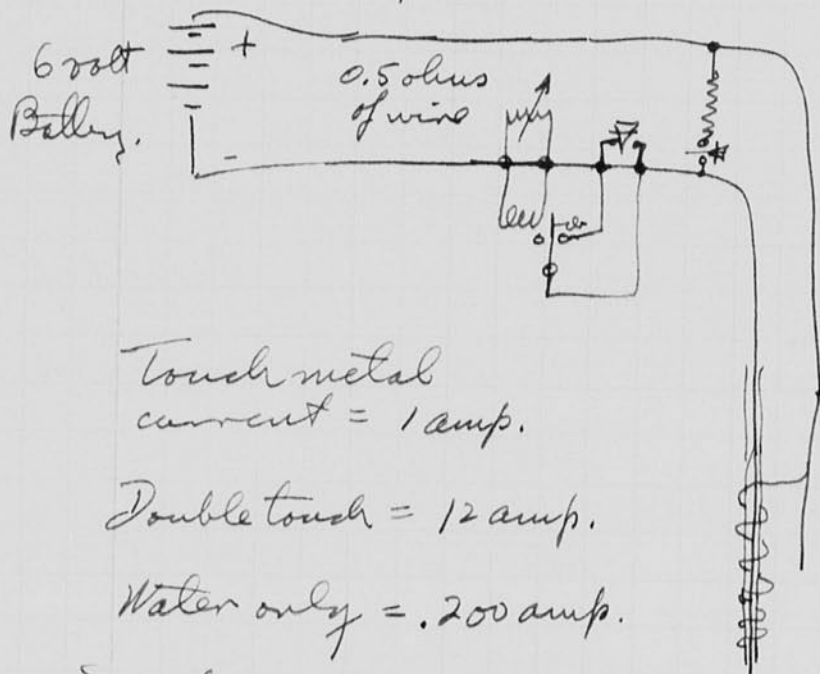 6 volt
Battery.
+
0.5 ohms
of wire
-
Touch metal
current = 1 amp.
Double touch = 12 amp.
Water only = .200 amp.